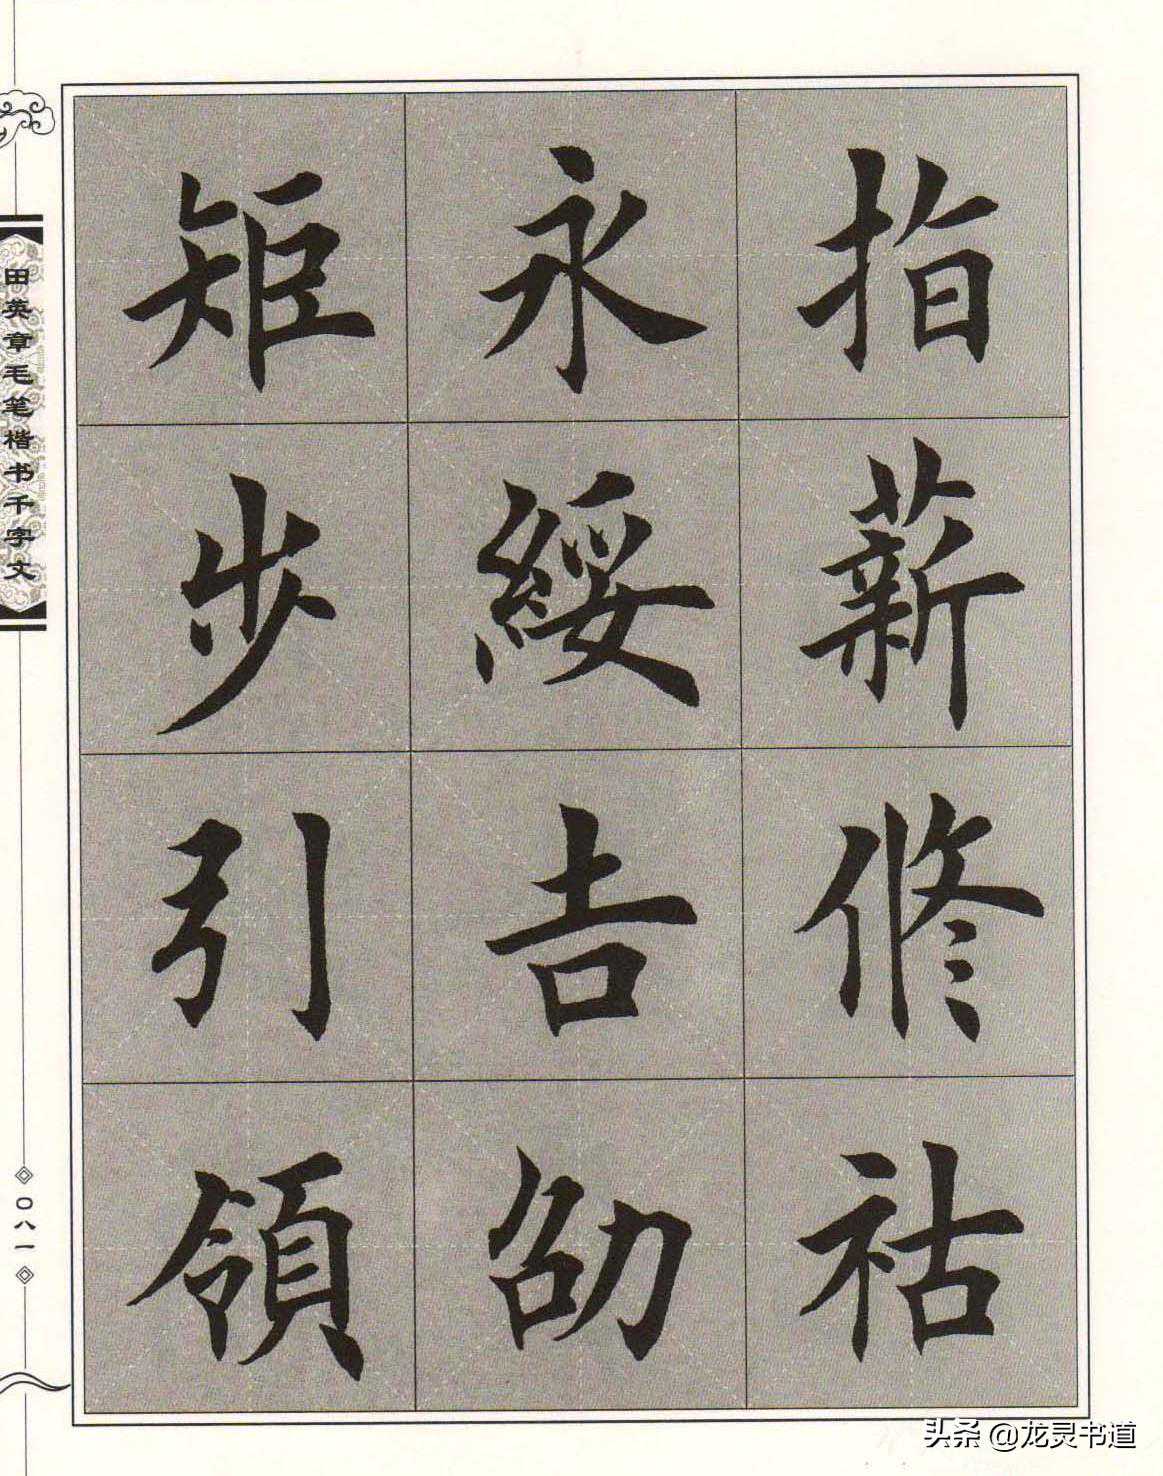 指薪修祜
永綏吉劭
矩步引領
田英章毛笔楷书千字文
〇八一
头条 @龙灵书道